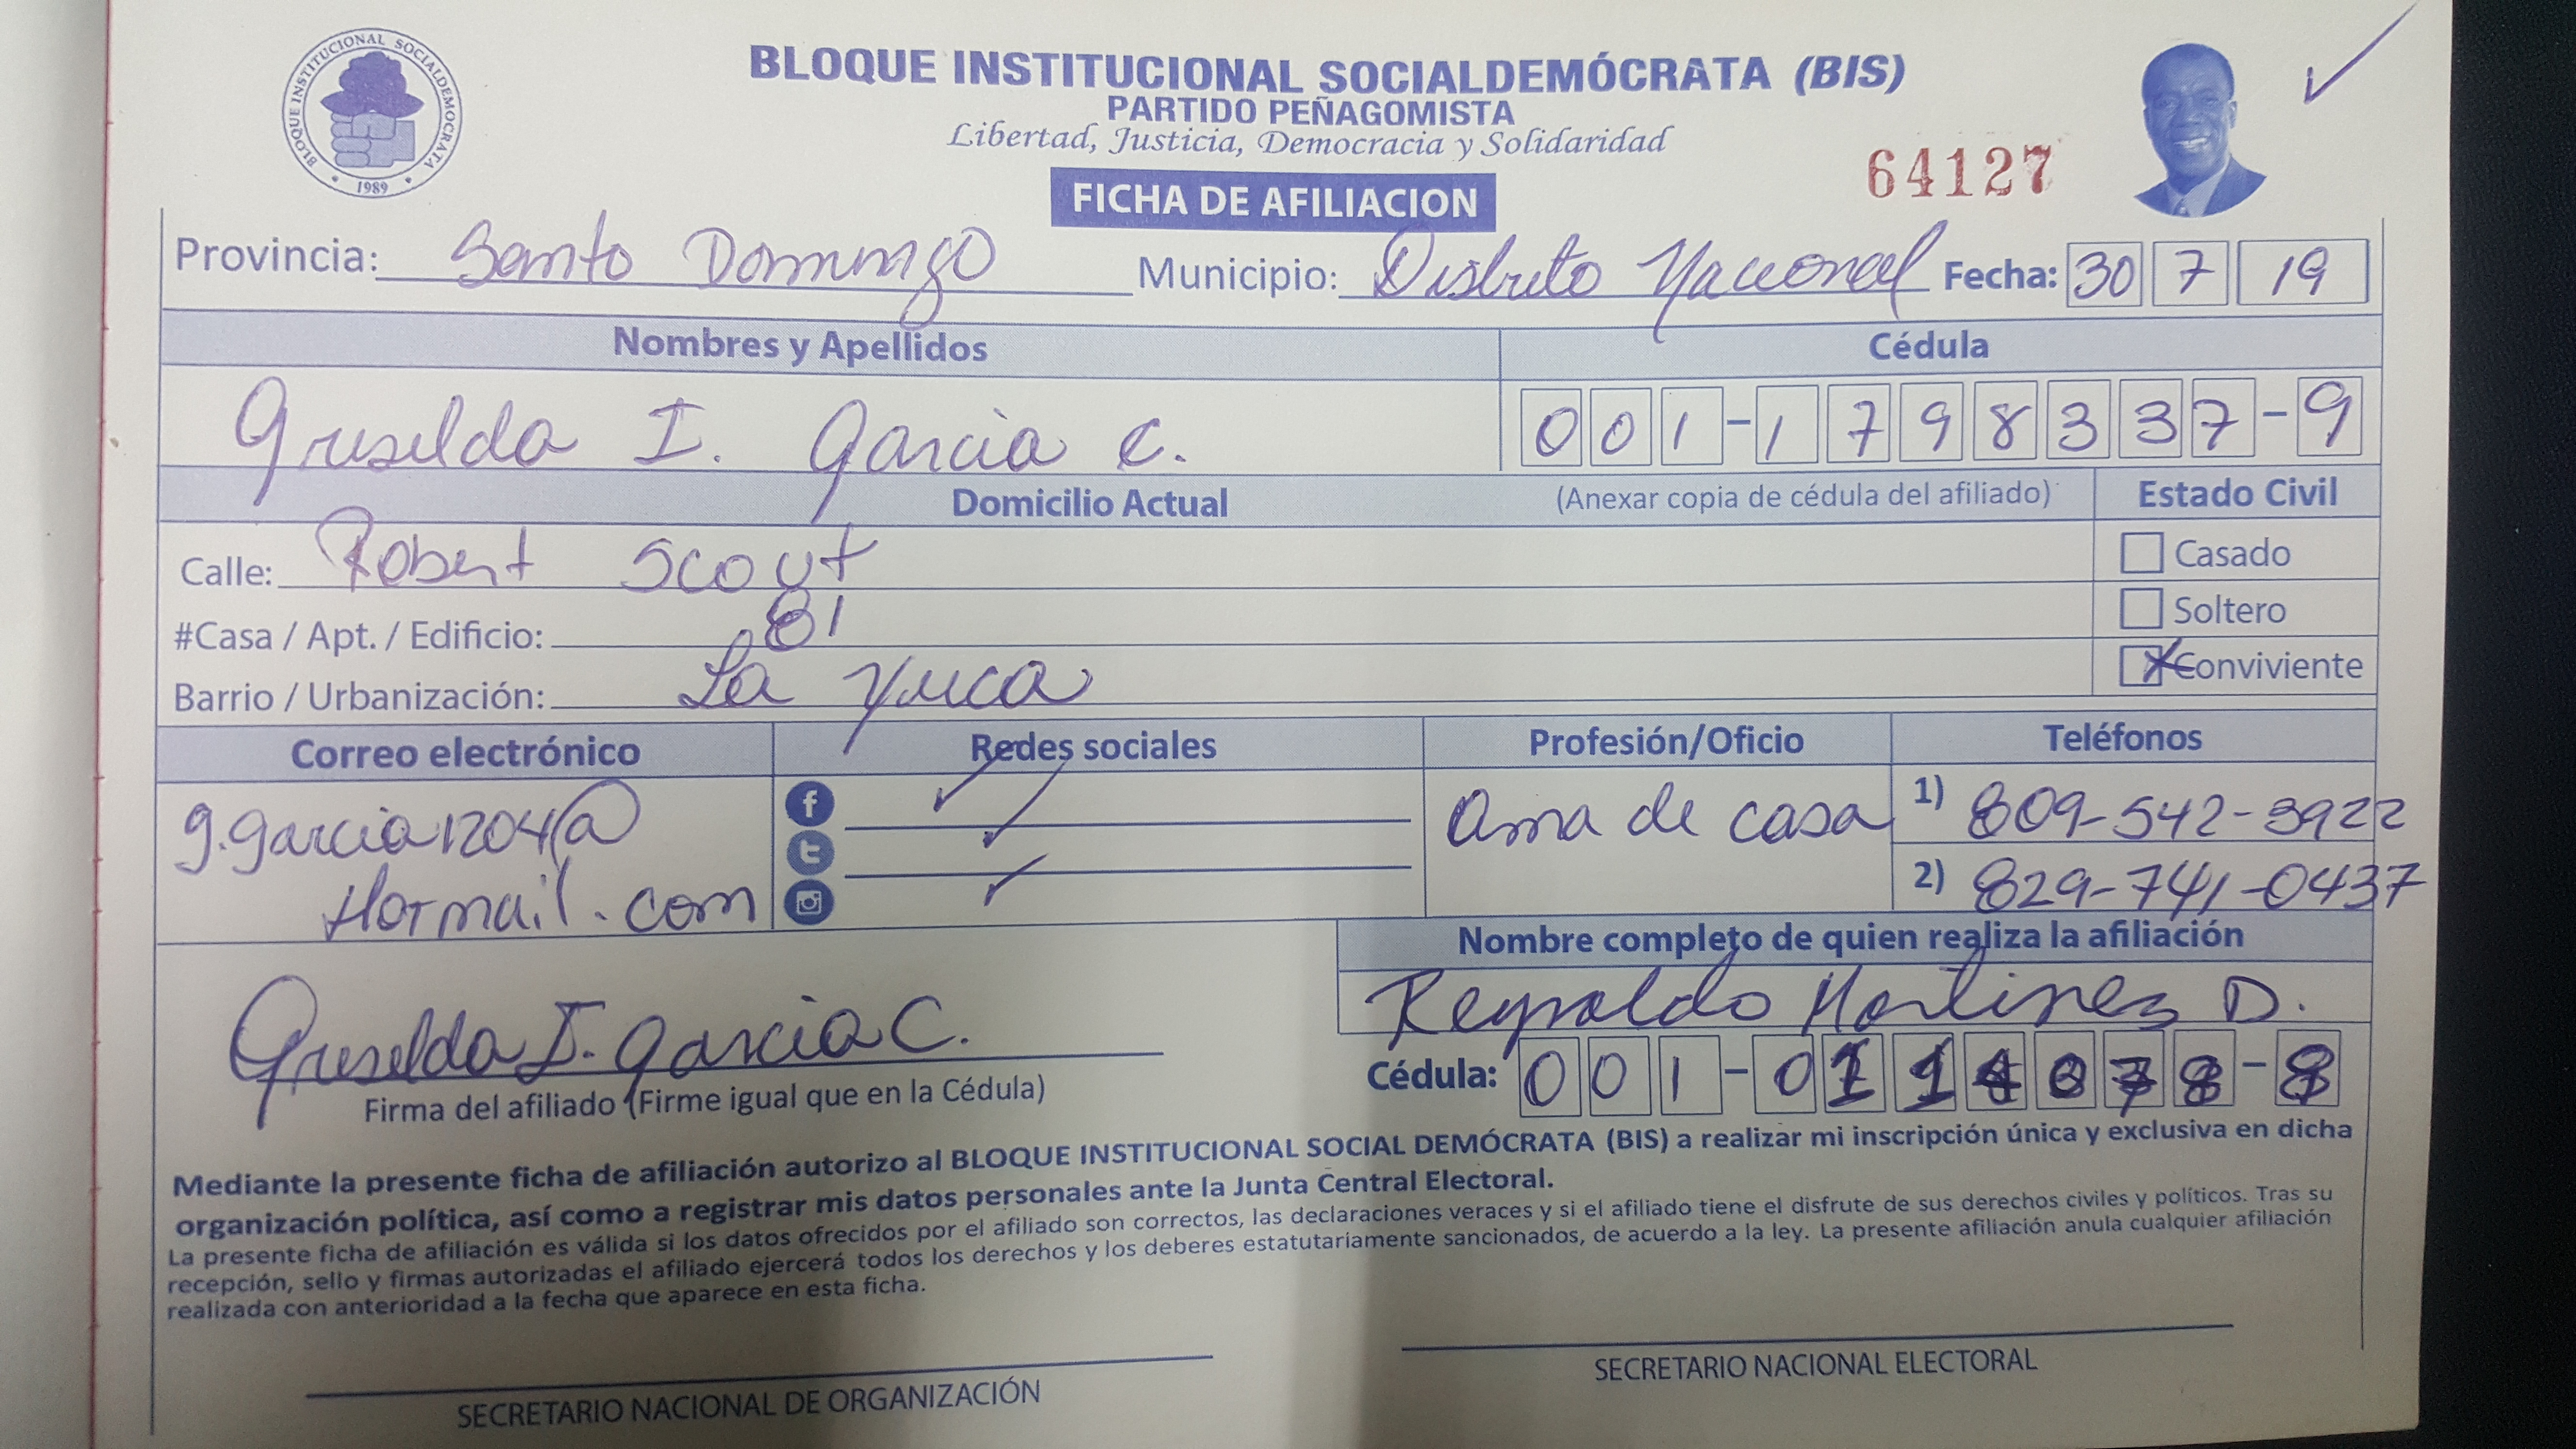 BLOQUE INSTITUCIONAL SOCIALDEMOCRATA
1989
BLOQUE INSTITUCIONAL SOCIALDEMÓCRATA (BIS)
PARTIDO PEÑAGOMISTA
Libertad, Justicia, Democracia y Solidaridad
64127
FICHA DE AFILIACION
Provincia: Santo Domingo Municipio: Distrito Nacional Fecha: 30 7 19
Nombres y Apellidos Cédula
Griselda I. Garcia C. 001-1798337-9
Domicilio Actual (Anexar copia de cédula del afiliado) Estado Civil
Calle: Robert Scout Casado
#Casa / Apt. / Edificio: 81 Soltero
Barrio / Urbanización: La Yuca Conviviente
Correo electrónico Redes sociales Profesión/Oficio Teléfonos
g.garcia1204@ Ama de casa 1) 809-542-3922
Hotmail.com 2) 829-741-0437
Nombre completo de quien realiza la afiliación
Reynaldo Martinez D.
Griselda I. Garcia C.
Cédula: 001-0
Firma del afiliado (Firme igual que en la Cédula)
Mediante la presente ficha de afiliación autorizo al BLOQUE INSTITUCIONAL SOCIAL DEMÓCRATA (BIS) a realizar mi inscripción única y exclusiva en dicha
organización política, así como a registrar mis datos personales ante la Junta Central Electoral.
La presente ficha de afiliación es válida si los datos ofrecidos por el afiliado son correctos, las declaraciones veraces y si el afiliado tiene el disfrute de sus derechos civiles y políticos. Tras su
recepción, sello y firmas autorizadas el afiliado ejercerá todos los derechos y los deberes estatutariamente sancionados, de acuerdo a la ley. La presente afiliación anula cualquier afiliación
realizada con anterioridad a la fecha que aparece en esta ficha.
SECRETARIO NACIONAL DE ORGANIZACIÓN SECRETARIO NACIONAL ELECTORAL